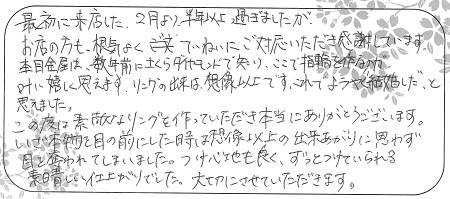 最初に来店した、2月より半年以上過ぎましたが
お店の方も、根気よくていねいにご対応いただき感謝しています。
本日金属は、数年前に立くらダイヤモンドで知り、ここで指輪を作るのが
叶い嬉しく思えます。リングの出来は、想像以上です、これでようやく結婚した、と
思えました。
この度は素敵なリングを作っていただき本当にありがとうございます。
いざ本物を目の前にした時は想像以上の出来あがりに思わず
目を奪われてしまいました。つけ心地も良く、ずっとつけていられる
素晴しい仕上がりでした。大切にさせていただきます。